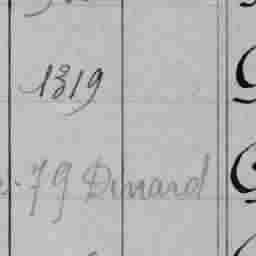 1319
79 Dinard